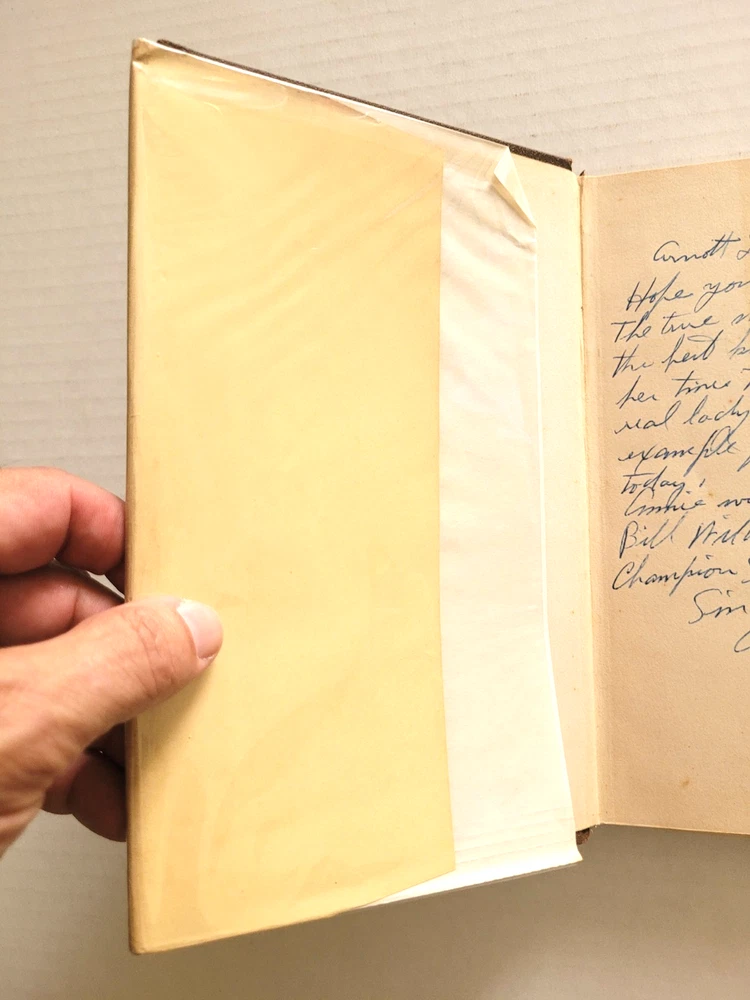 Arnott
Hope you
The true
the best
her times
real lady
example
today.
Annie wa
Bill Wild
Champion
Sin